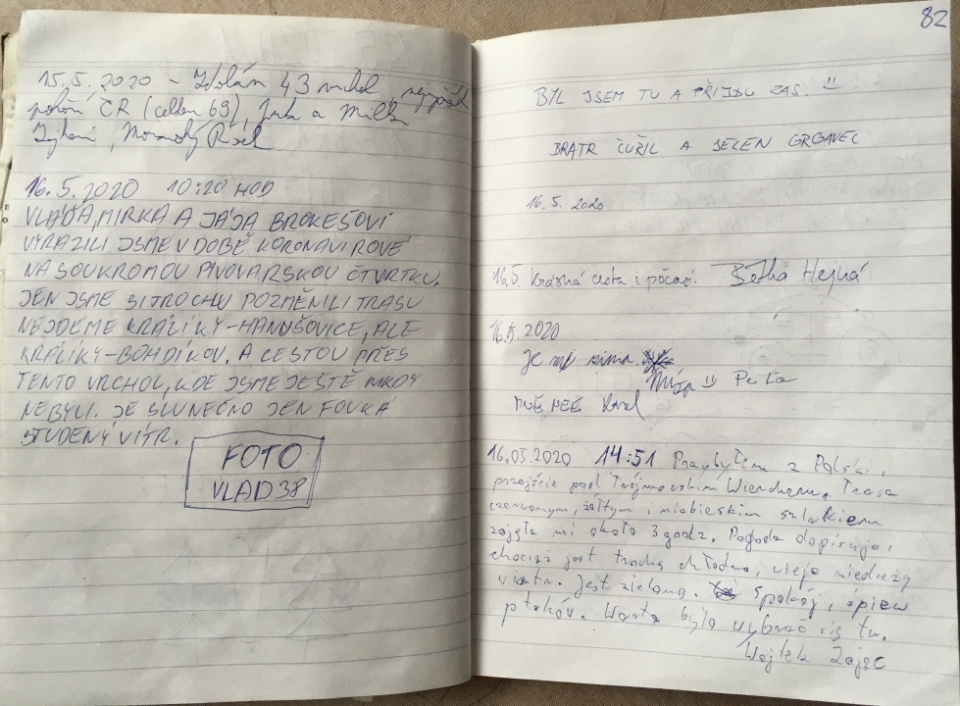 15.5.2020 - Zdolán 43 vrchol nejvyšší
pohoří ČR (celkem 69), a
Moravský
16.5.2020 10:20 HOD
VLÁĎA, MIRKA A JÁJA BROKEŠOVI
VYRAZILI JSME V DOBĚ KORONAVIROVÉ
NA SOUKROMOU PIVOVARSKOU ČTVRTKU.
JEN JSME SI TROCHU POZMĚNILI TRASU
NEJDEME KRÁLÍKY-HANUŠOVICE, ALE
KRÁLÍKY-BOHDÍKOV. A CESTOU PŘES
TENTO VRCHOL, KDE JSME JEŠTĚ NIKDY
NEBYLI. JE SLUNEČNO JEN FOUKÁ
STUDENÝ VÍTR.
FOTO
VLAD38
82
BYL JSEM TU A PŘIJDU ZAS.
BRATR ČUŘIL A JELEN GRGAVEC
16.5.2020
16.5. Krásná cesta i počasí. Běťka Hejná.
16.5.2020
Je mi zima.
Míša Peťa
MNĚ NEE Karel
16.05.2020 14:51 Przybyłem z Polski,
przejście pod Trójmorskim Wierchem. Trasa
czerwonym, żółtym i niebieskim szlakiem
zajęła mi około 3 godz. Pogoda dopisuje,
chociaż jest trochę chłodno, wieje nieduży
wiatr. Jest zielono. Spokój, śpiew
ptaków. Warto było wybrać się tu.
Wojtek Zając